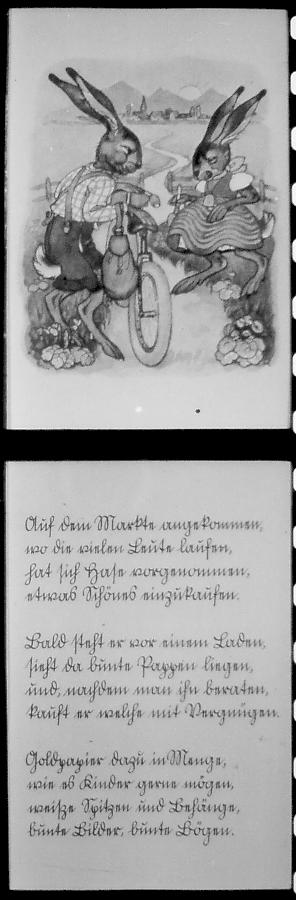 Auf dem Markte angekommen,
wo die vielen Leute laufen,
hat sich Hase vorgenommen,
etwas Schönes einzukaufen.
Bald steht er vor einem Laden,
sieht da bunte Pappen liegen,
und, nachdem man ihn beraten,
kauft er welche mit Vergnügen.
Goldpapier dazu in Menge,
wie es Kinder gerne mögen,
weiße Spitzen und Behänge,
bunte Bilder, bunte Bögen.